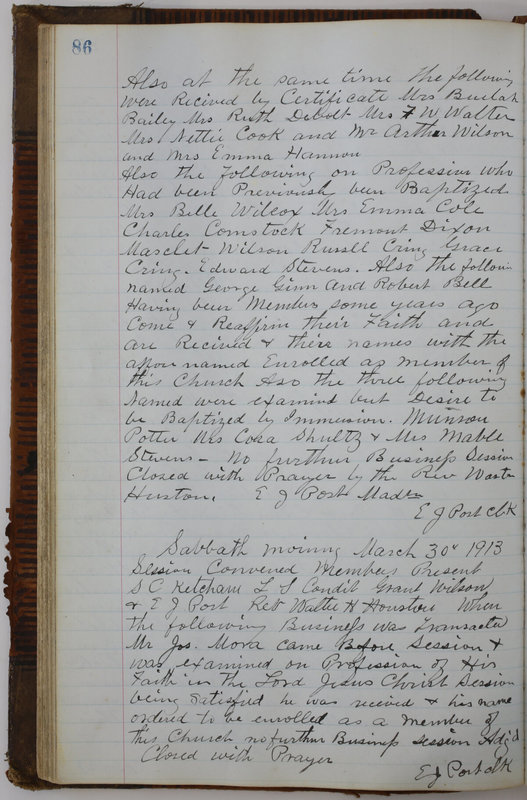 86
Also at the same time the following
were Recived by Certificate Mrs Buelah
Bailey Mrs Ruth Debolt Mrs F W Walter
Mrs Nettie Cook and Mr Arther Wilson
and Mrs Emma Hannon
Also the following on Profession who
Had been Previously been Baptized
Mrs Belle Wilcox Mrs Emma Cole
Charles Comstock Fremont Dixon
Wilson Russell Cring Grace
Cring. Edward Stevens. Also the followin
named George Ginn and Robert Bell
Having been Members some years ago
Come & Reaffirm their Faith and
are Recived & there names with the
above named Enrolled as member of
this Church Aso the three following
Named were examined but Desire to
be Baptized by Immersion. Munson
Potter Mrs Cora Shultz & Mrs Mable
Stevens - No further Business Session
Closed with Prayer by the Rev
Huston. E J Post
E J Post Clk
Sabbath moring March 30th 1913
Session Convened Members Present
S C Ketcham L S Condit Grant Wilson
& E J Post Rev Walter H Houston When
the following Business was Transacted
Mr Jos. Mora came Before Session &
was examined on Profession of His
Faith in the Lord Jesus Christ Session
being Satisfid he was recived & his name
ordered to be enrolled as a member of
this Church no further Business session Adj'd
Closed with Prayer
E J Post Clk